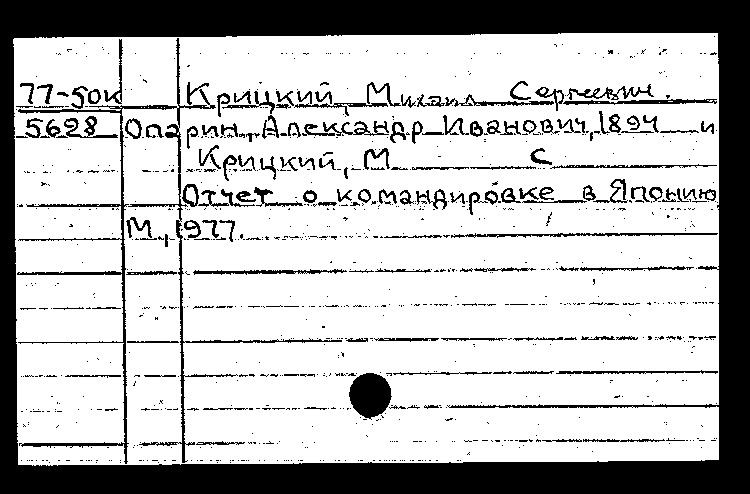 77-50к Крицкий, Михаил Сергеевич.
5628 Опарин, Александр Иванович, 1894 и
Крицкий, М С
Отчет о командировке в Японию
М., 1977.